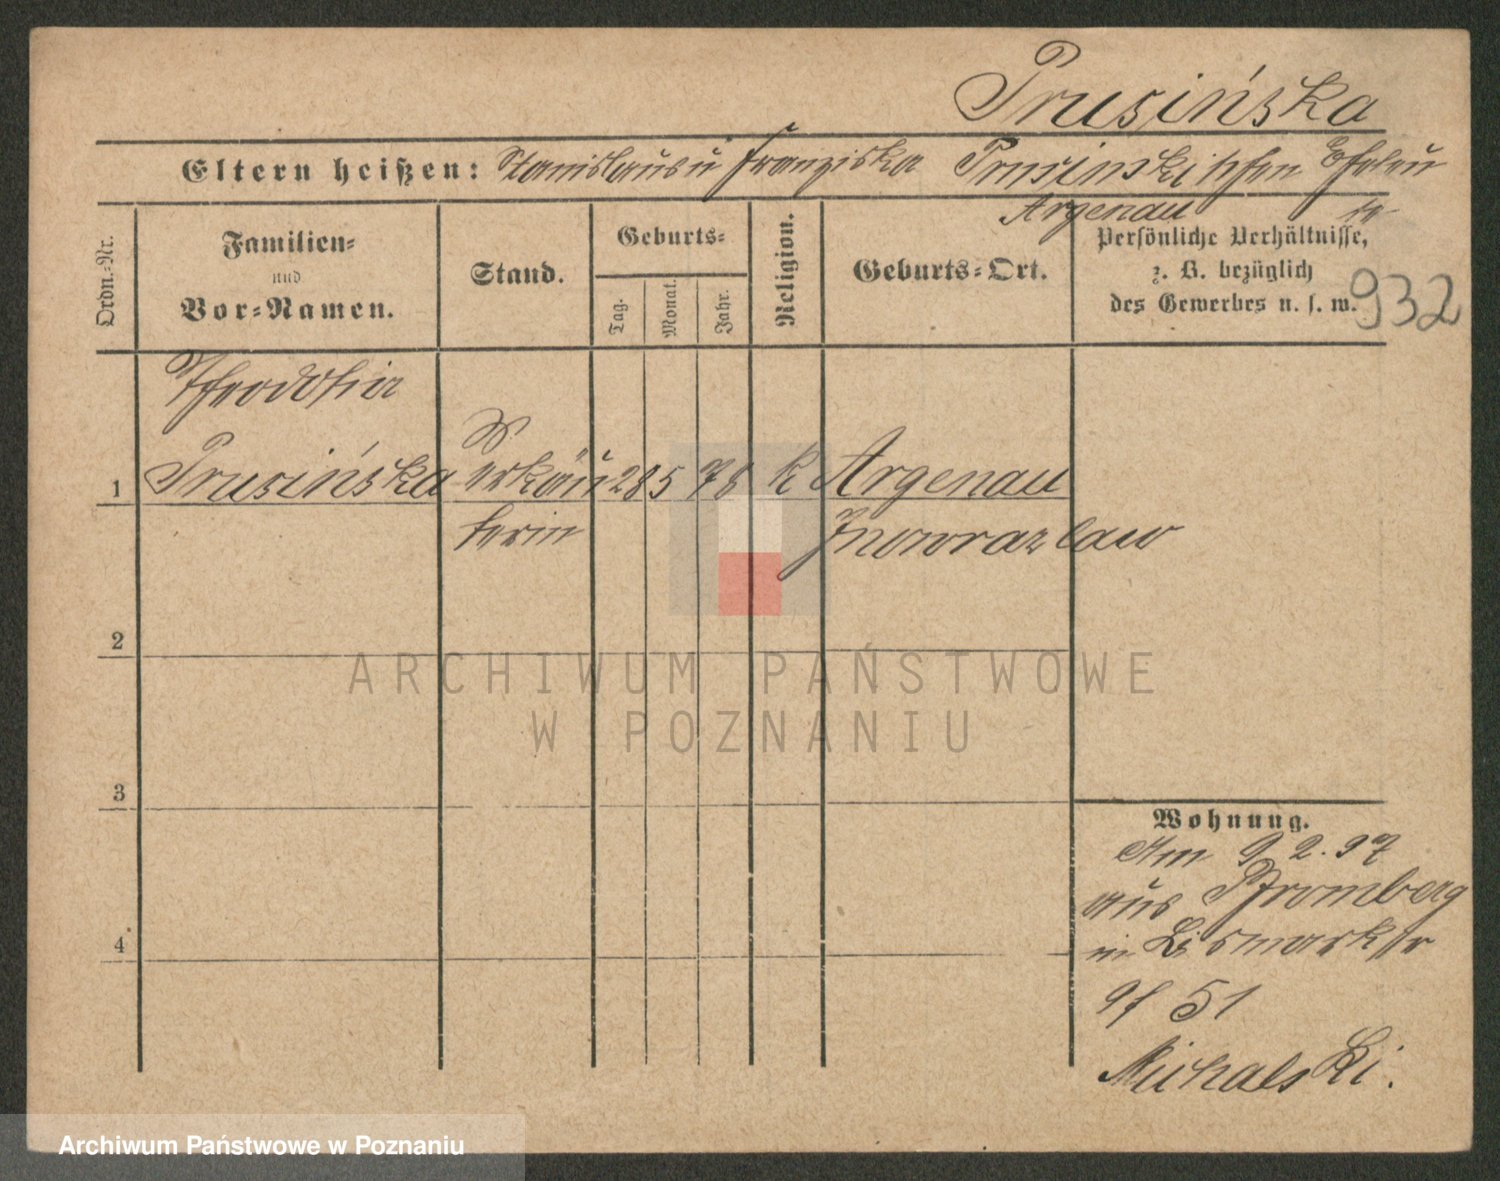 Prusińska
Eltern heißen: Stanislaus u Franziska Prusinskischen Eheleu
Argenau te
Ordn.-Nr.
Familien-
und
Vor-Namen.
Stand.
Geburts-
Tag.
Monat.
Jahr.
Religion.
Geburts-Ort.
Persönliche Verhältnisse,
z. B. bezüglich
des Gewerbes u. s. w.
932
Theodosia
1 Prusińska Verkäu 28 5 78 k Argenau
ferin Inowrazlaw
2
ARCHIWUM PAŃSTWOWE
W POZNANIU
3
Wohnung.
Am 9 2. 97
aus Bromberg
4
in Bismarkstr
51
Michalski.
Archiwum Państwowe w Poznaniu